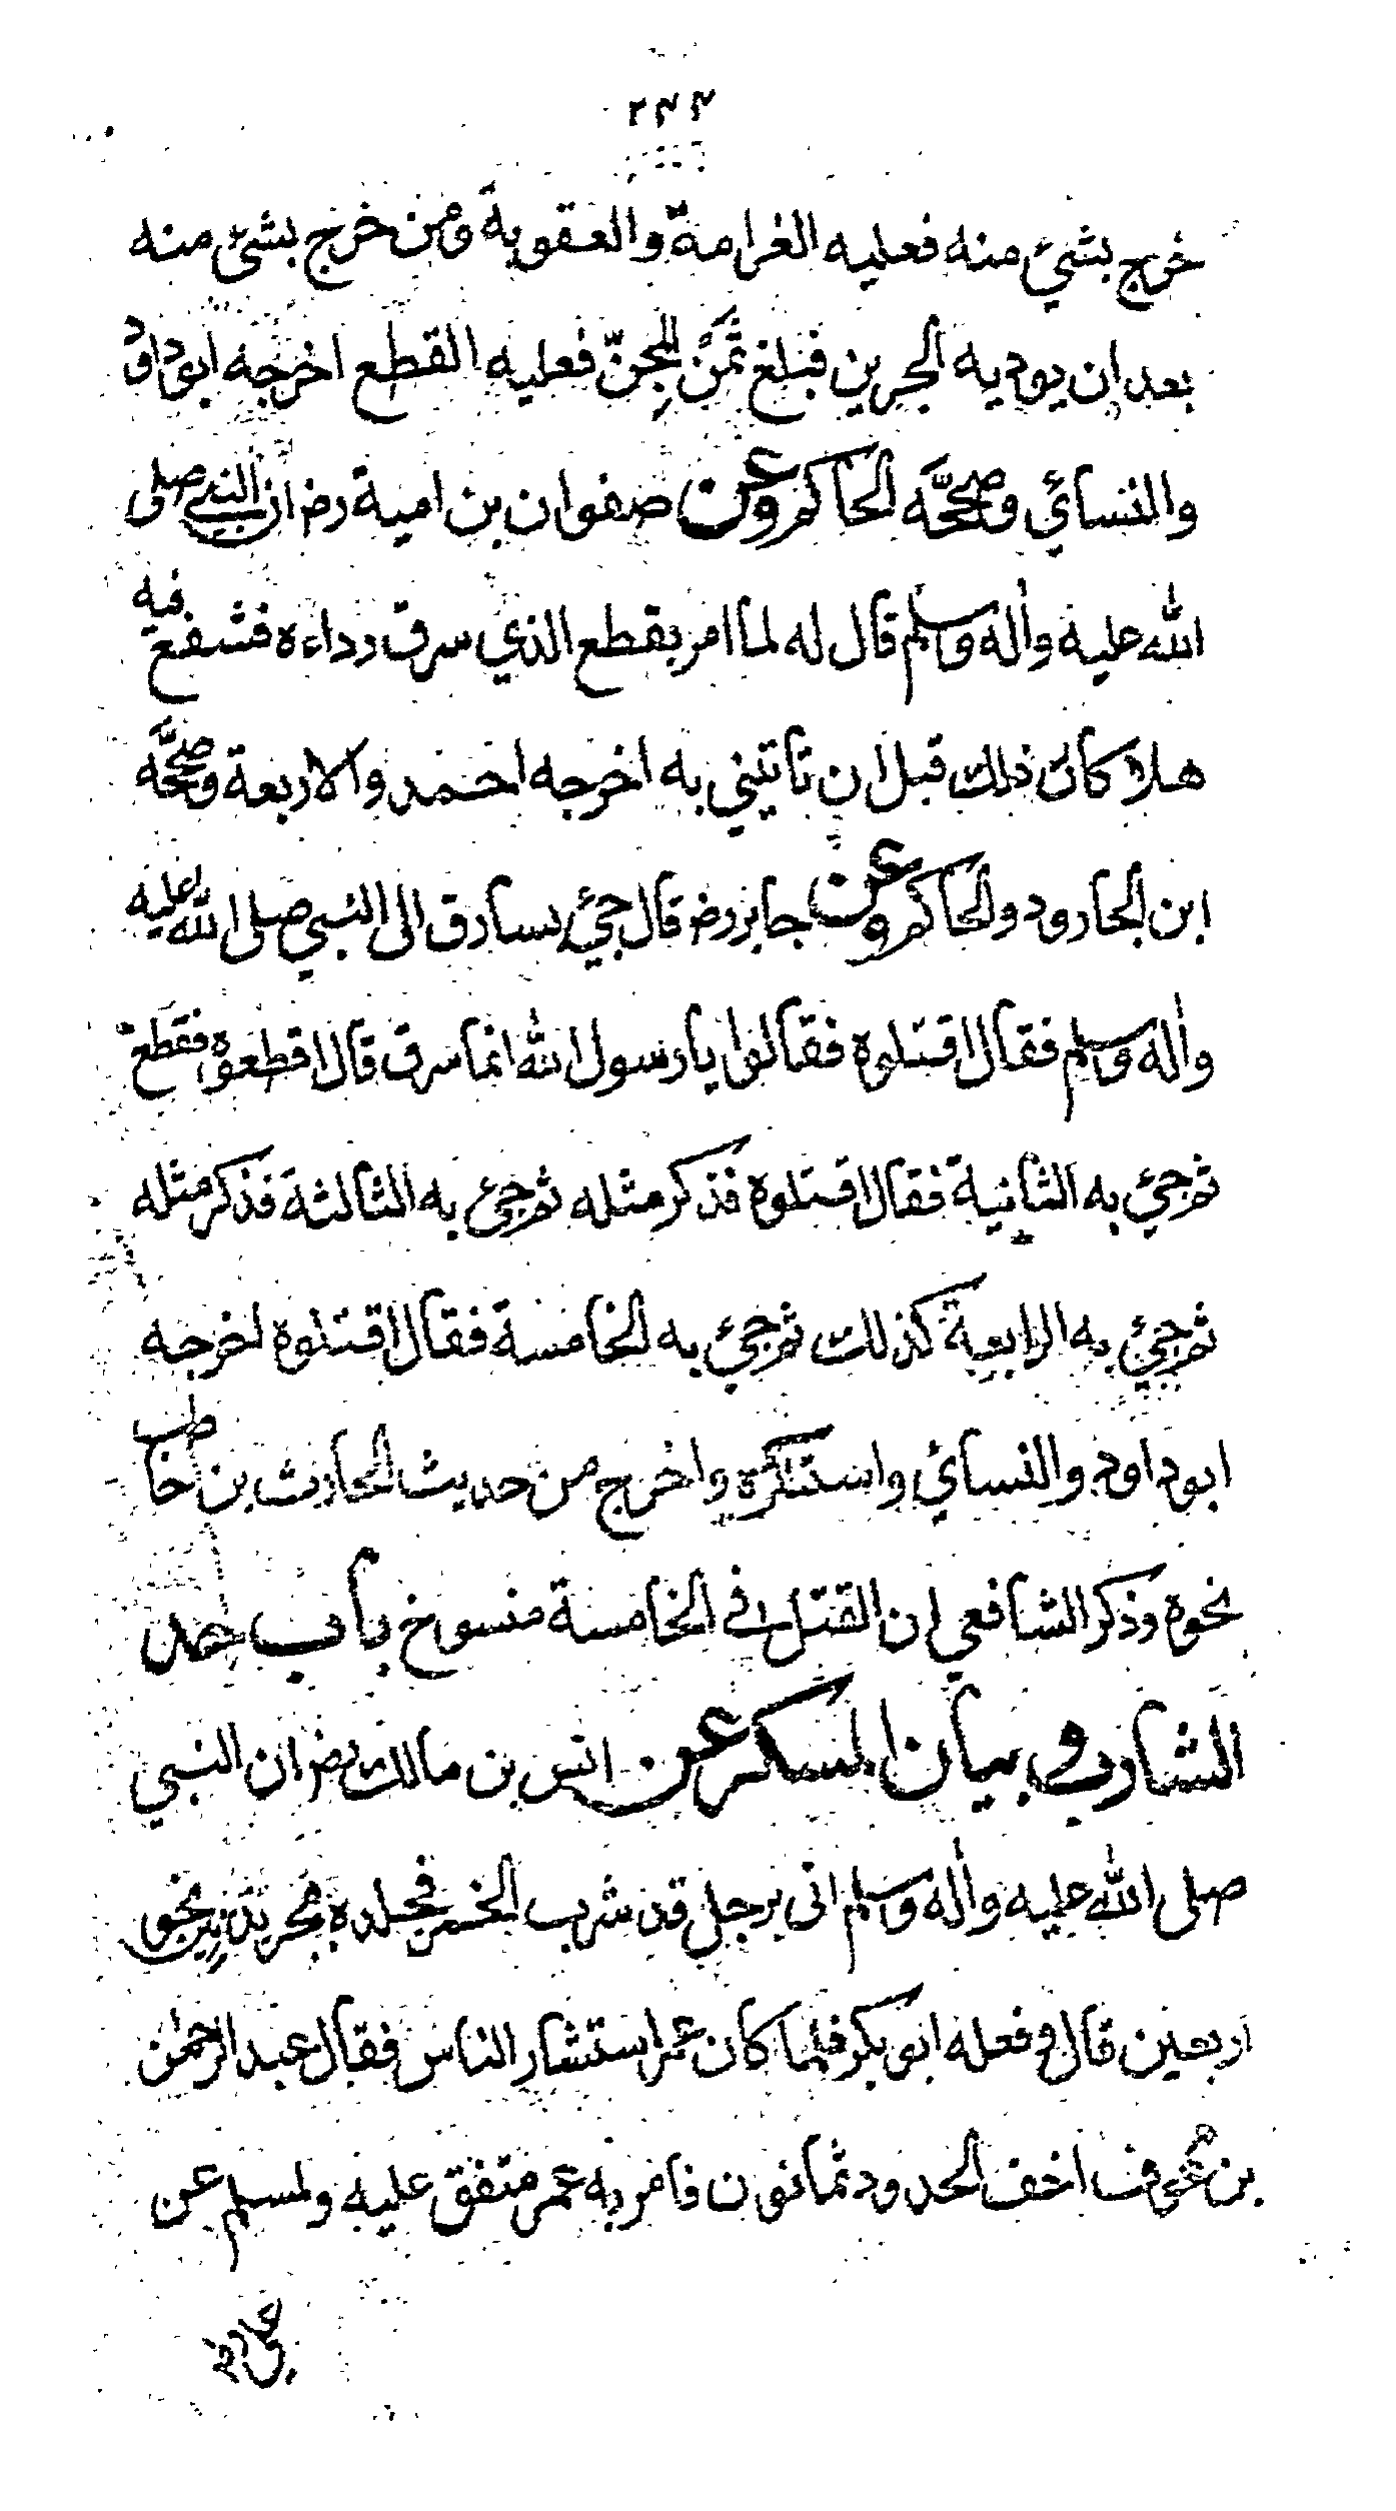 ٢٣٣
خرج بشيء منه فعليه الغرامة والعقوبة ومن خرج بشيء منه
بعد ان يوديه الجرين فبلغ ثمن المجن فعليه القطع اخرجه ابو داود
والنسائي وصححه الحاكم وعن صفوان بن امية رض ان النبي صلى
الله عليه واله وسلم قال له لما امر بقطع الذي سرق رداءه فشفع فيه
هلا كان ذلك قبل ان تاتيني به اخرجه احمد والاربعة وصححه
ابن الجارود والحاكم وعن جابر رض قال جيء بسارق الى النبي صلى الله عليه
واله وسلم فقال اقتلوه فقالوا يا رسول الله انما سرق قال اقطعوه فقطع
ثم جيء به الثانية فقال اقتلوه فذكر مثله ثم جيء به الثالثة فذكر مثله
ثم جيء به الرابعة كذلك ثم جيء به الخامسة فقال اقتلوه اخرجه
ابو داود والنسائي واستنكره واخرج من حديث الحارث بن حاطب
نحوه وذكر الشافعي ان القتل في الخامسة منسوخ باب حد
الشارب وبيان المسكر عن انس بن مالك رض ان النبي
صلى الله عليه واله وسلم اتى برجل قد شرب الخمر فجلده بجريدتين نحو
اربعين قال وفعله ابو بكر فلما كان عمر استشار الناس فقال عبد الرحمن
بن عوف اخف الحدود ثمانون فامر به عمر متفق عليه ولمسلم عن